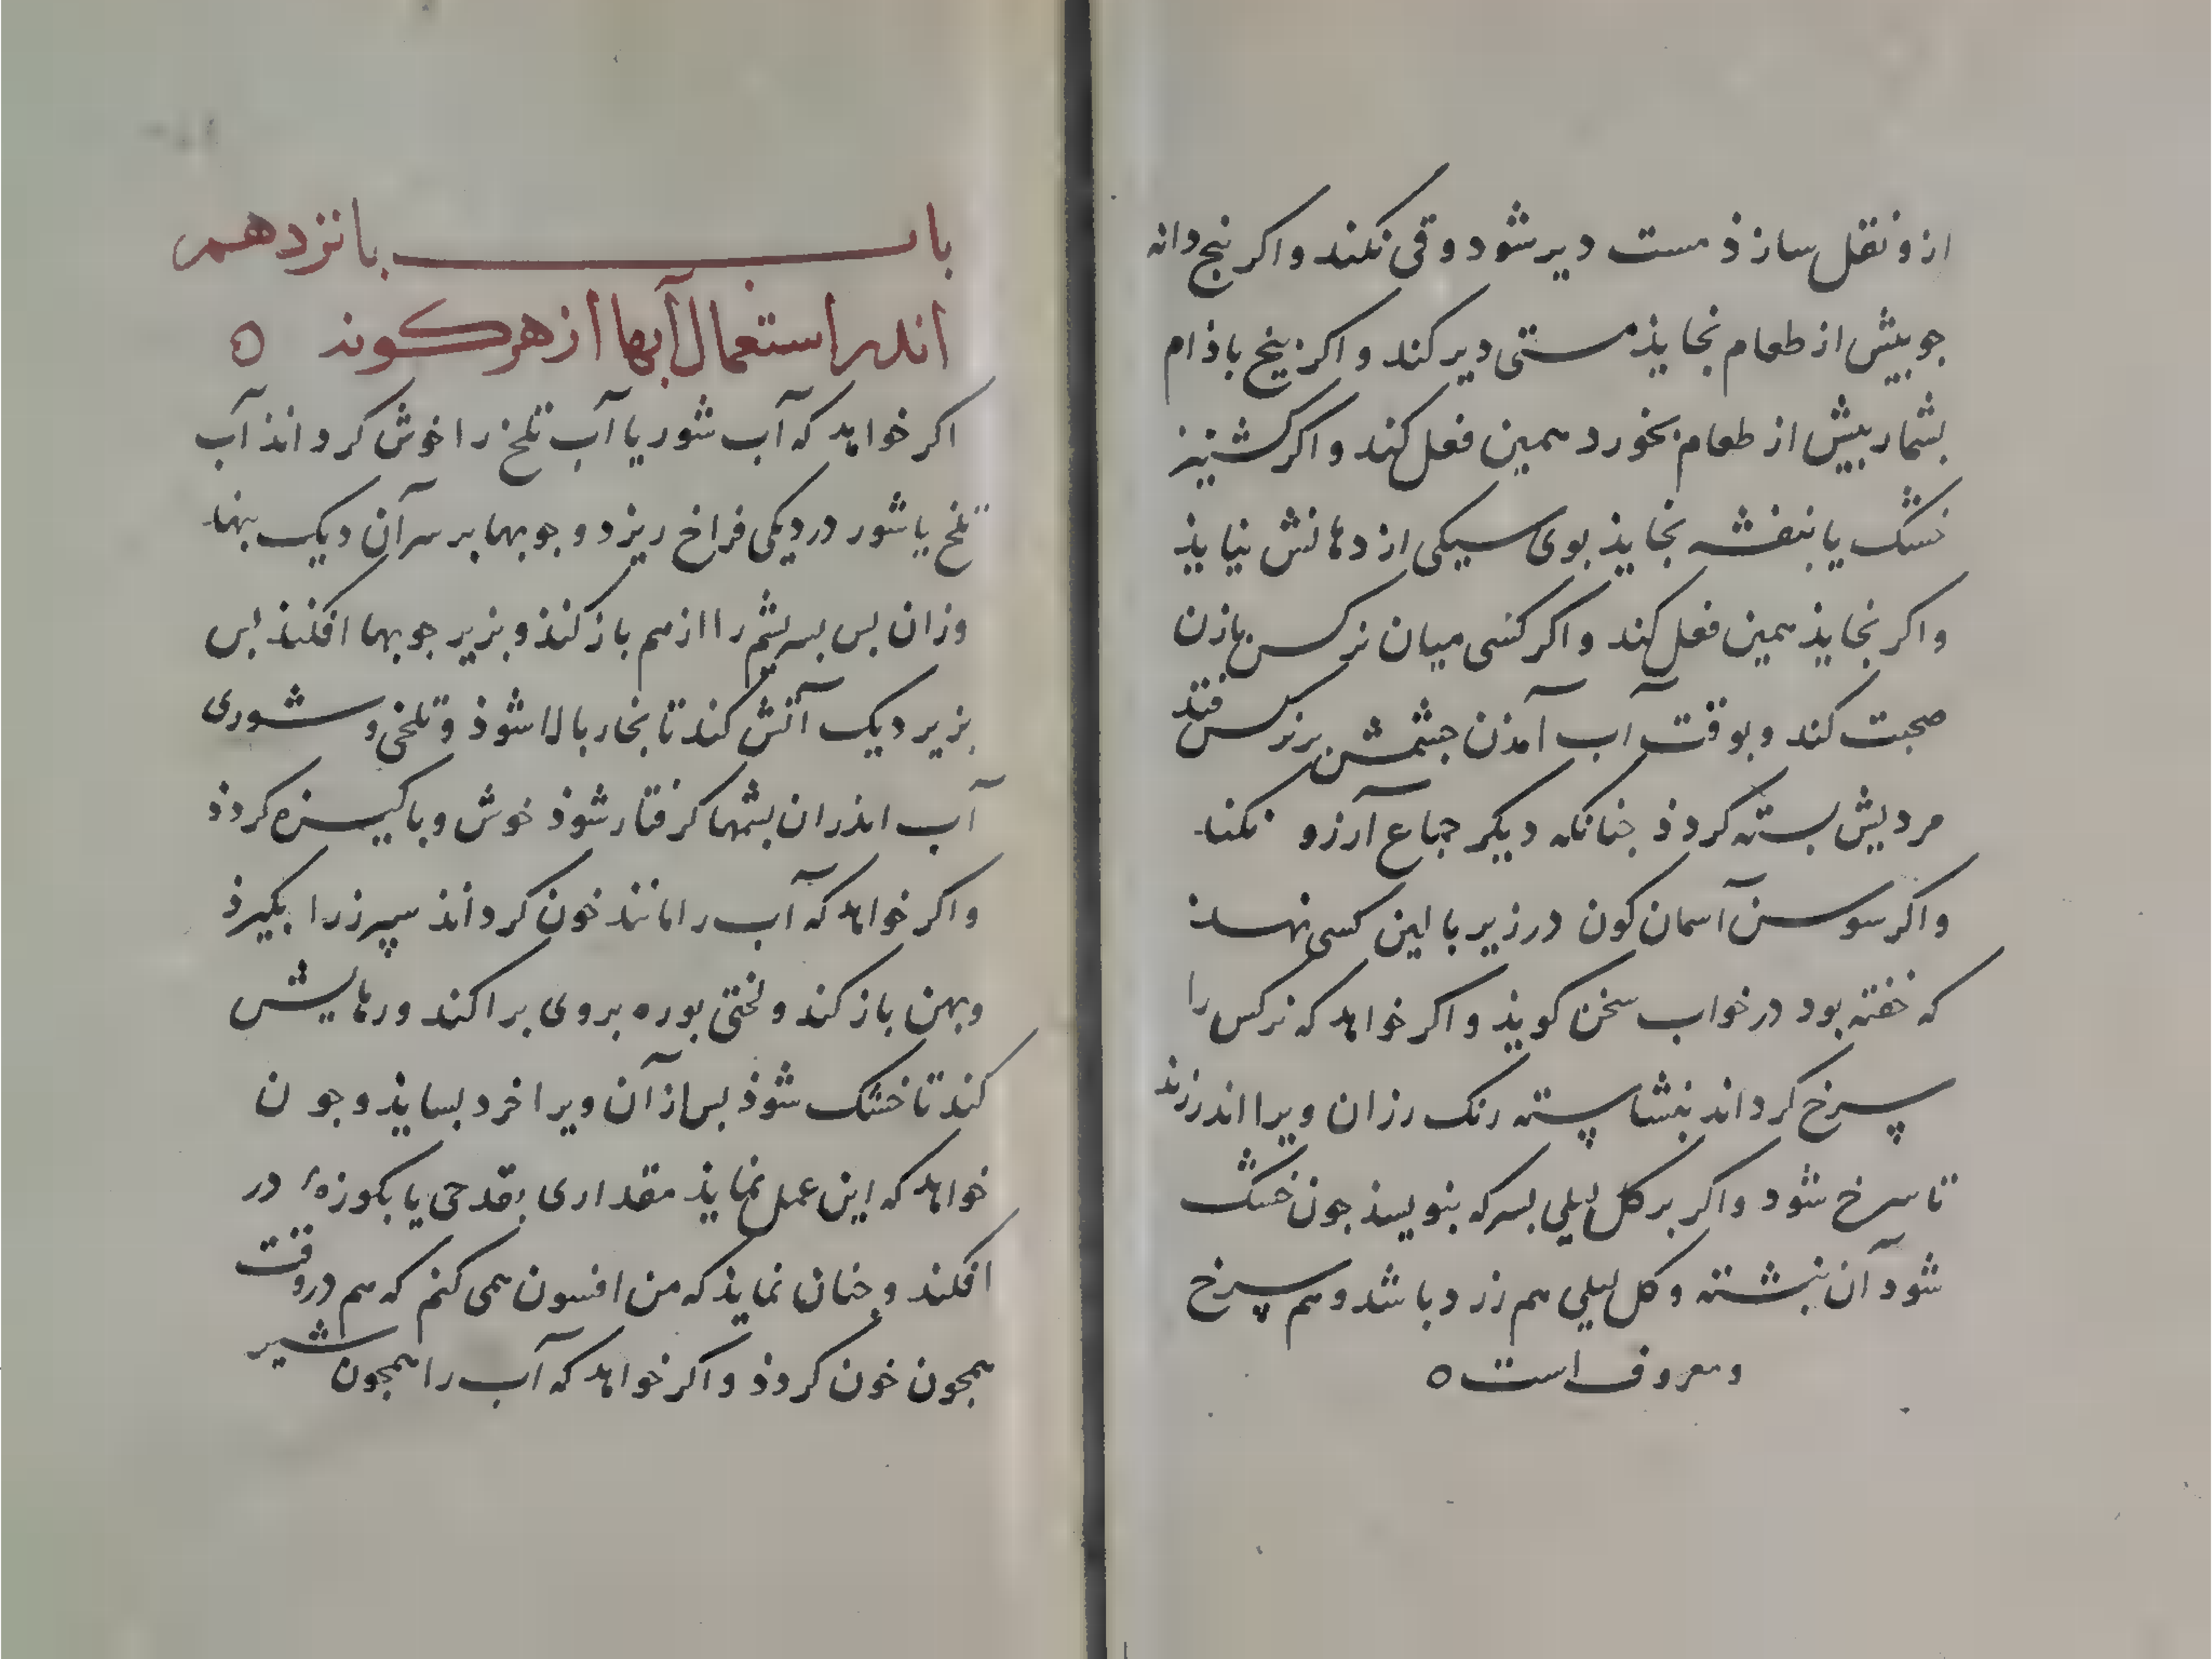 ازو نقل سازذ مست دیر شود و قی نکند و اکر نبج دانه
جو بیش از طعام بخایذ مستی دیر کند و اکر بنج باذام
بشمار بیش از طعام بخورد همین فعل کند و اکر کشنیز
خشک یا بنفشه بخایذ بوی سیکی از دهانش نیایذ
و اکر بخایذ همین فعل کند و اکر کسی میان نرکس بازن
صحبت کند و بوقت آب آمذن جشمش بر نرکس فتد
مردیش بسته کردذ جنانکه دیکر جماع آرزو نکند
و اکر سوسن آسمان کون در زیر بالین کسی نهند
که خفته بود در خواب سخن کویذ و اکر خواهد که نرکس را
سرخ کرداند بنشاسته رنک رزان ویرا اندر زند
تا سرخ شود و اکر بر کل لیلی بسرکه بنویسذ جون خشک
شود آن نبشته و کل لیلی هم زرد باشد و هم سرخ
و معروف است ه
باب بانزدهم
اندر استعمال آبها از هر کونه ه
اکر خواهد که آب شور یا آب تلخ را خوش کرداند آب
تلخ یا شور در دیکی فراخ ریزد و جوبها بر سر آن دیک بنهد
وزان بس بسر پشم را از هم باز کنذ و بزیر جوبها افکند بس
بزیر دیک آتش کند تا بخار بالا شوذ و تلخی و شوری
آب اندران بشمها کرفتار شوذ خوش و باکیزه کردذ
و اکر خواهد که آب را مانند خون کرداند سپرز را بکیرذ
و بهن باز کند و لختی بوره بروی براکند و رهایش
کند تا خشک شوذ بس از آن ویرا خرد بسایذ و جون
خواهد که این عمل نمایذ مقداری بقدحی یا بکوزهٔ در
افکند و جنان نمایذ که من افسون همی کنم که هم در وقت
همجون خون کردذ و اکر خواهد که آب را همجون شیر